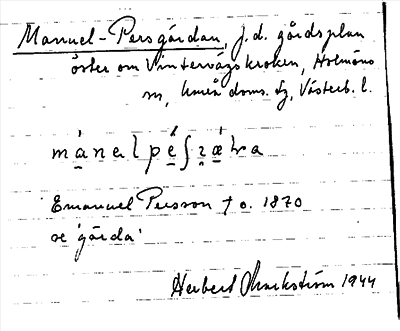 Manuel-Persgårdan, f.d. gårdsplan
öster om Vintervägskroken, Holmöns
sn, Umeå doms. tg, Västerb. l.
Emanuel Persson † o. 1870
se 'gårda'
Herbert Markström 1944